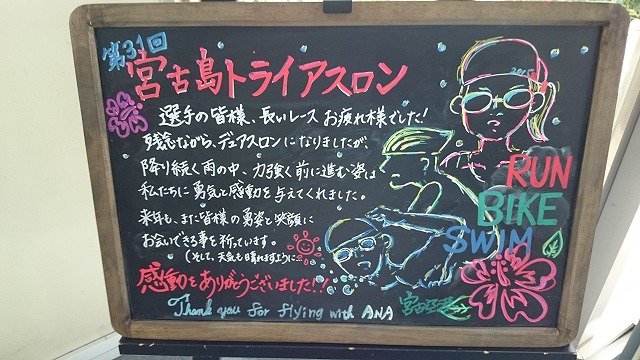 第31回
宮古島トライアスロン
選手の皆様、長いレースお疲れ様でした!
残念ながら、デュアスロンになりましたが、
降り続く雨の中、力強く前に進む姿は
私たちに勇気と感動を与えてくれました。
来年も、また皆様の勇姿と笑顔に
お会いできる事を祈っています。
(そして、天気も晴れますように…
感動をありがとうございました!!
Thank you for flying with ANA
2015
RUN
BIKE
SWIM